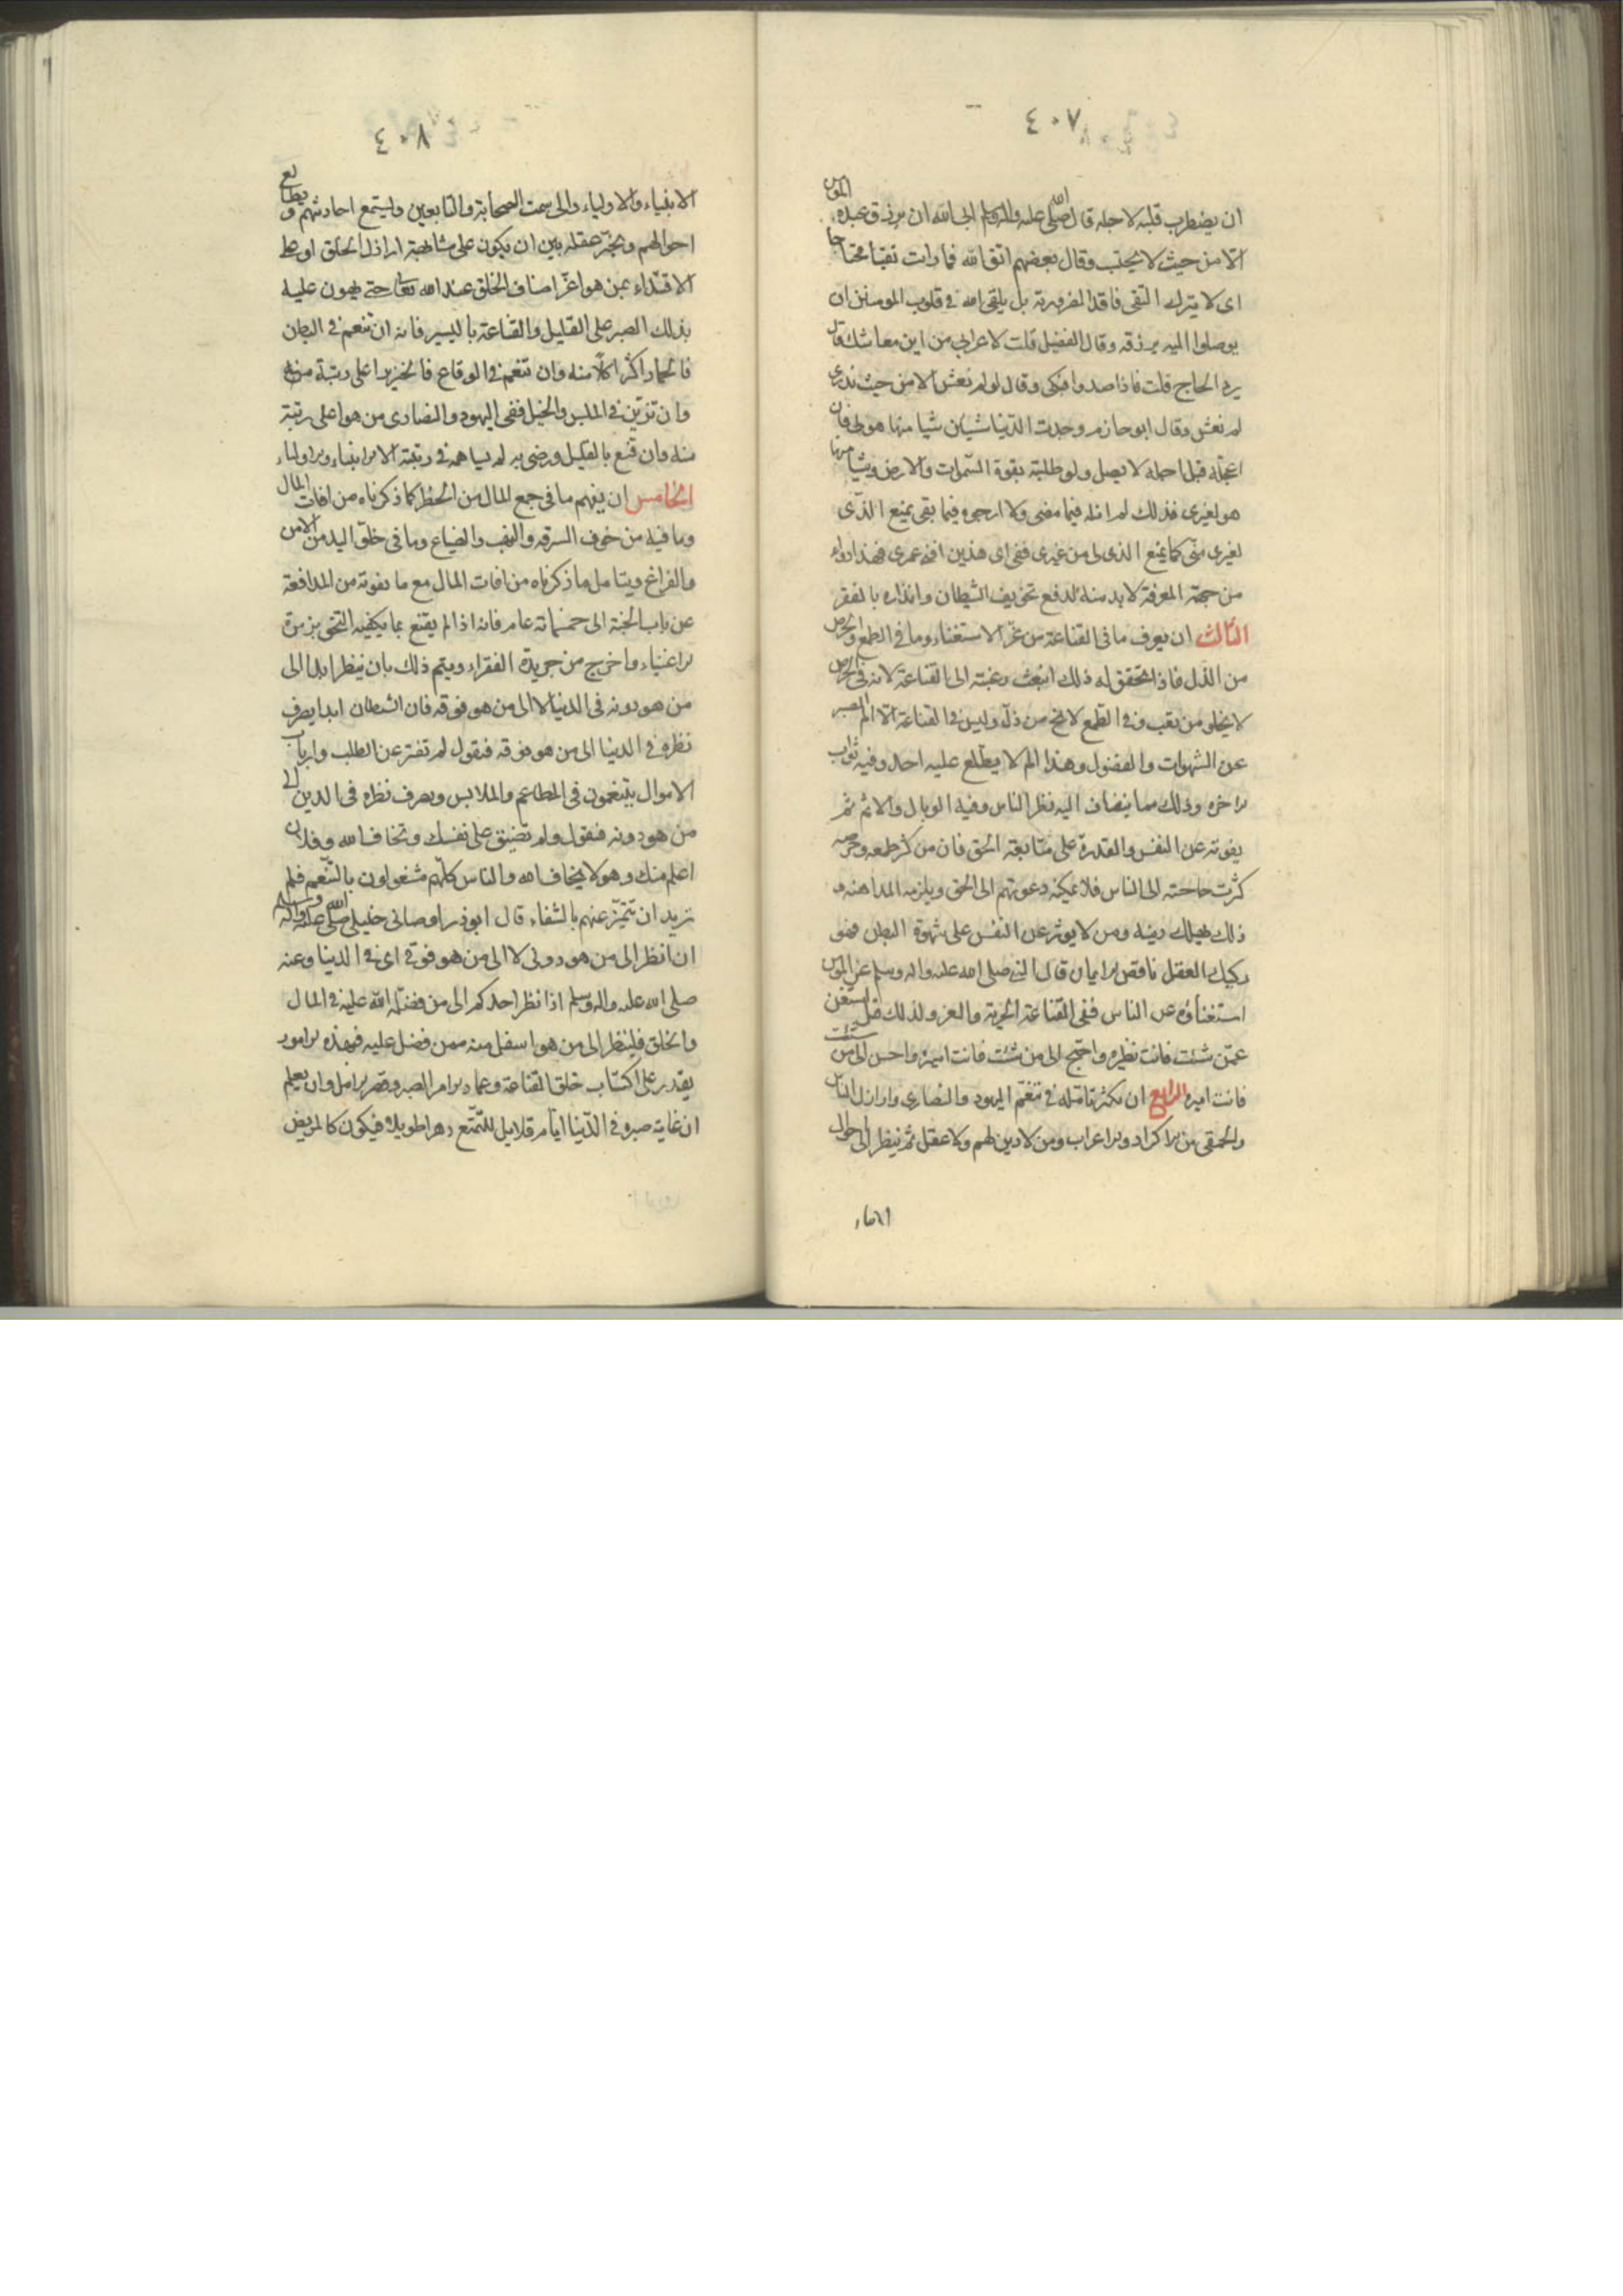 ٤٠٧
ان يضطرب قلبه لاجله قال صلى الله عليه واله وسلم ابى الله ان يرزق عبده المؤمن
الا من حيث لا يحتسب وقال بعضهم اتق الله فما رايت تقيا محتاجا
اى لا يترك التقى فاقد الضرورته بل يلقى الله فى قلوب المومنين ان
يوصلوا اليه يرزقه وقال الفضيل قلت لاعرابى من اين معاشك قال
يرد الحاج قلت فاذا صدروا فبكى وقال لو لم نعش الا من حيث ندرى
لم نعش وقال ابو حازم وجدت الدنيا شيئان شيا منها هو لى فلن
اعجله قبل اجله لا يصل ولو طلبته بقوة السموات والارض وشيا منها
هو لغيرى فذلك لم انله فيما مضى ولا ارجوه فيما بقى يمنع الذى
لغيرى منى كما يمنع الذى لى من غيرى ففى اى هذين افنى عمرى فهذا دواء
من جهة المعرفة لا بد منه لدفع تخويف الشيطان وانذاره بالفقر
الثالث ان يعرف ما فى القناعة من عز الاستغناء وما فى الطمع والحرص
من الذل فاذا تحقق له ذلك انبعث رغبته الى القناعة لانه فى الحرص
لا يخلو من تعب وفى الطمع لا يخ من ذل وليس فى القناعة الا الم الصبر
عن الشهوات والفضول وهذا الم لا يطلع عليه احد وفيه ثواب
الاخره وذلك مما يضاف اليه نظر الناس وفيه الوبال والاثم ثم
يفوته عن النفس والقدرة على متابعة الحق فان من كثر طمعه وحرصه
كثرت حاجته الى الناس فلا يمكنه دعوتهم الى الحق ويلزمه المداهنه و
ذلك يهلك دينه ومن لا يوثر عز النفس على شهوة البطن فهو
ركيك العقل ناقص الايمان قال النبى صلى الله عليه واله وسلم عز المؤمن
استغناؤه عن الناس ففى القناعة الحرية والعز ولذلك قيل استغن
عمن شئت فانت نظيره واحتج الى من شئت فانت اسيره واحسن الى من شئت
فانت اميره الرابع ان يكثر تامله فى تنعم اليهود والنصارى واراذل الناس
والحمقى من الاكراد والاعراب ومن لا دين لهم ولا عقل ثم ينظر الى احوال
الانبياء
٤٠٨
الانبياء والاولياء والى سمت الصحابة والتابعين ويستمع احاديثهم ويطالع
احوالهم ويخير عقله بين ان يكون على مشابهة اراذل الخلق او على
الاقتداء بمن هو اعز اصناف الخلق عند الله تعالى حتى يهون عليه
بذلك الصبر على القليل والقناعة باليسير فانه ان تنعم فى البطن
فالحمار اكثر اكلا منه وان تنعم فى الوقاع فالخنزير اعلى رتبة منه
وان تزين فى الملبس والخيل ففى اليهود والنصارى من هو اعلى رتبة
منه وان قنع بالقليل ورضى به لم يساهمه فى رتبته الا الانبياء والاولياء
الخامس ان يفهم ما فى جمع المال من الخطر كما ذكرناه من افات المال
وما فيه من خوف السرقة والنهب والضياع وما فى خلو اليد من الامن
والفراغ ويتامل ما ذكرناه من افات المال مع ما يفوته من المدافعة
عن باب الجنة الى خمسمائة عام فانه اذا لم يقنع بما يكفيه التحق بزمرة
الاغنياء واخرج من جريدة الفقراء ويتم ذلك بان ينظر ابدا الى
من هو دونه فى الدنيا لا الى من هو فوقه فان الشيطان ابدا يصرف
نظره فى الدنيا الى من هو فوقه فيقول لم تفتر عن الطلب وارباب
الاموال يتنعمون فى المطاعم والملابس ويصرف نظره فى الدين الى
من هو دونه فيقول ولم تضيق على نفسك وتخاف الله وفلان
اعلم منك وهو لا يخاف الله والناس كلهم مشغولون بالتنعم فلم
تريد ان تتميز عنهم بالشقاء قال ابوذر اوصانى خليلى صلى الله عليه واله وسلم
ان انظر الى من هو دونى لا الى من هو فوقى اى فى الدنيا وعنه
صلى الله عليه واله وسلم اذا نظر احدكم الى من فضله الله عليه فى المال
والخلق فلينظر الى من هو اسفل منه ممن فضل عليه فبهذه الامور
يقدر على اكتساب خلق القناعة وعماد الامر الصبر وقصر الامل وان يعلم
ان غاية صبره فى الدنيا ايام قلايل للتمتع دهرا طويلا فيكون كالمريض